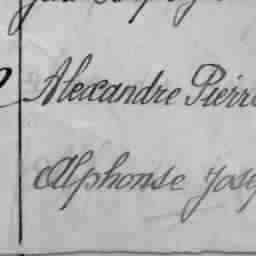 Alexandre Pierre
Alphonse Jose